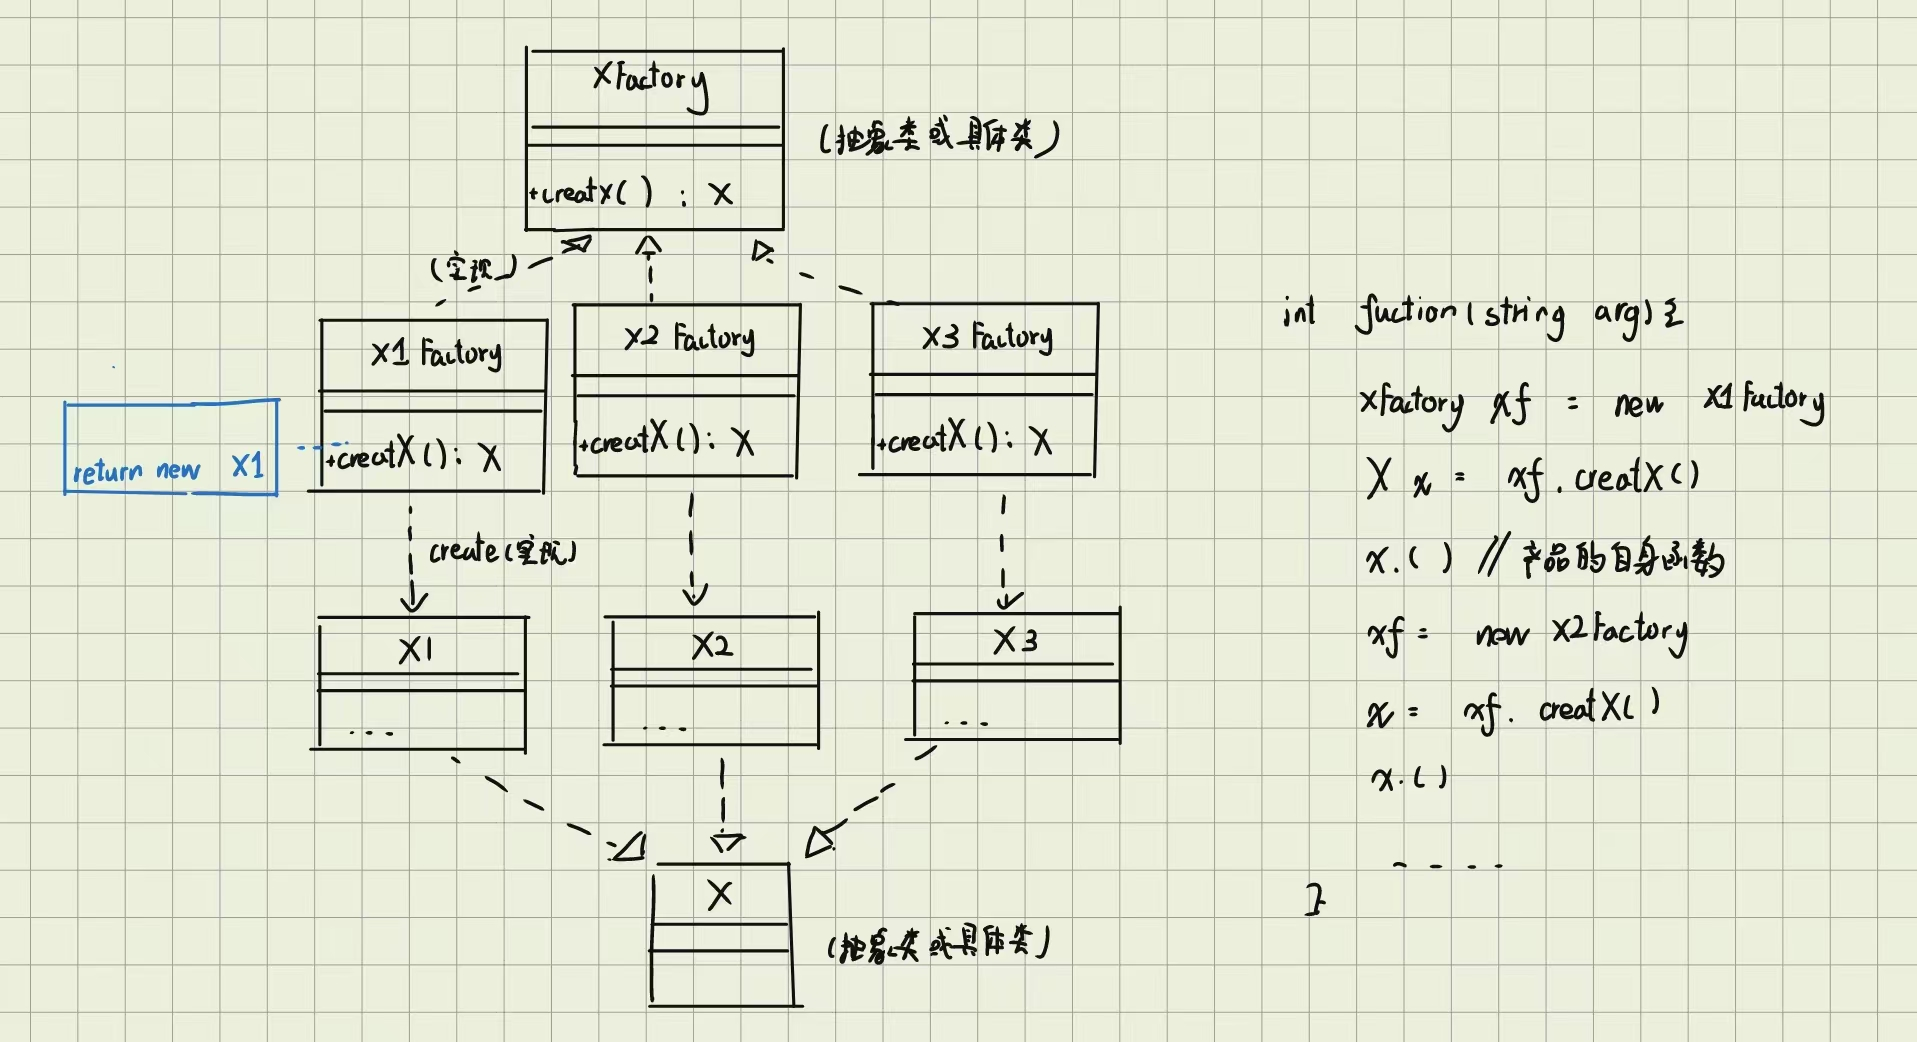 XFactory
(抽象类或具体类)
+creatX( ) : X
(实现)
X1 Factory
X2 Factory
X3 Factory
+creatX(): X
+creatX(): X
+creatX(): X
return new X1
create(实现)
X1
X2
X3
...
...
...
X
(抽象类或具体类)
int fuction(string arg){
XFactory xf = new X1Factory
X x = xf.creatX()
x.( ) // 产品的自身函数
xf = new X2Factory
x = xf. creatX( )
x.( )
- - - -
}